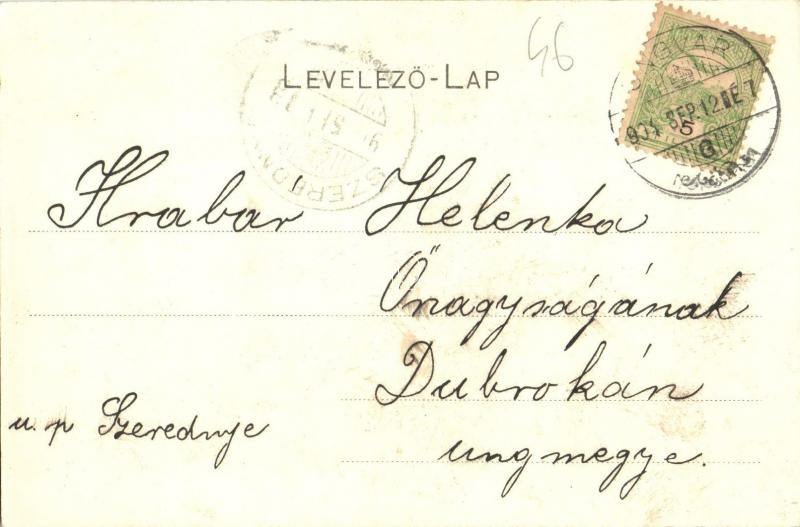 46
LEVELEZŐ-LAP
UNGVÁR
904 SEP 12 DE 7
5
6
Hrabár Helenka
Őnagyságának
Dubrokán
u. p Szerednye
ungmegye.